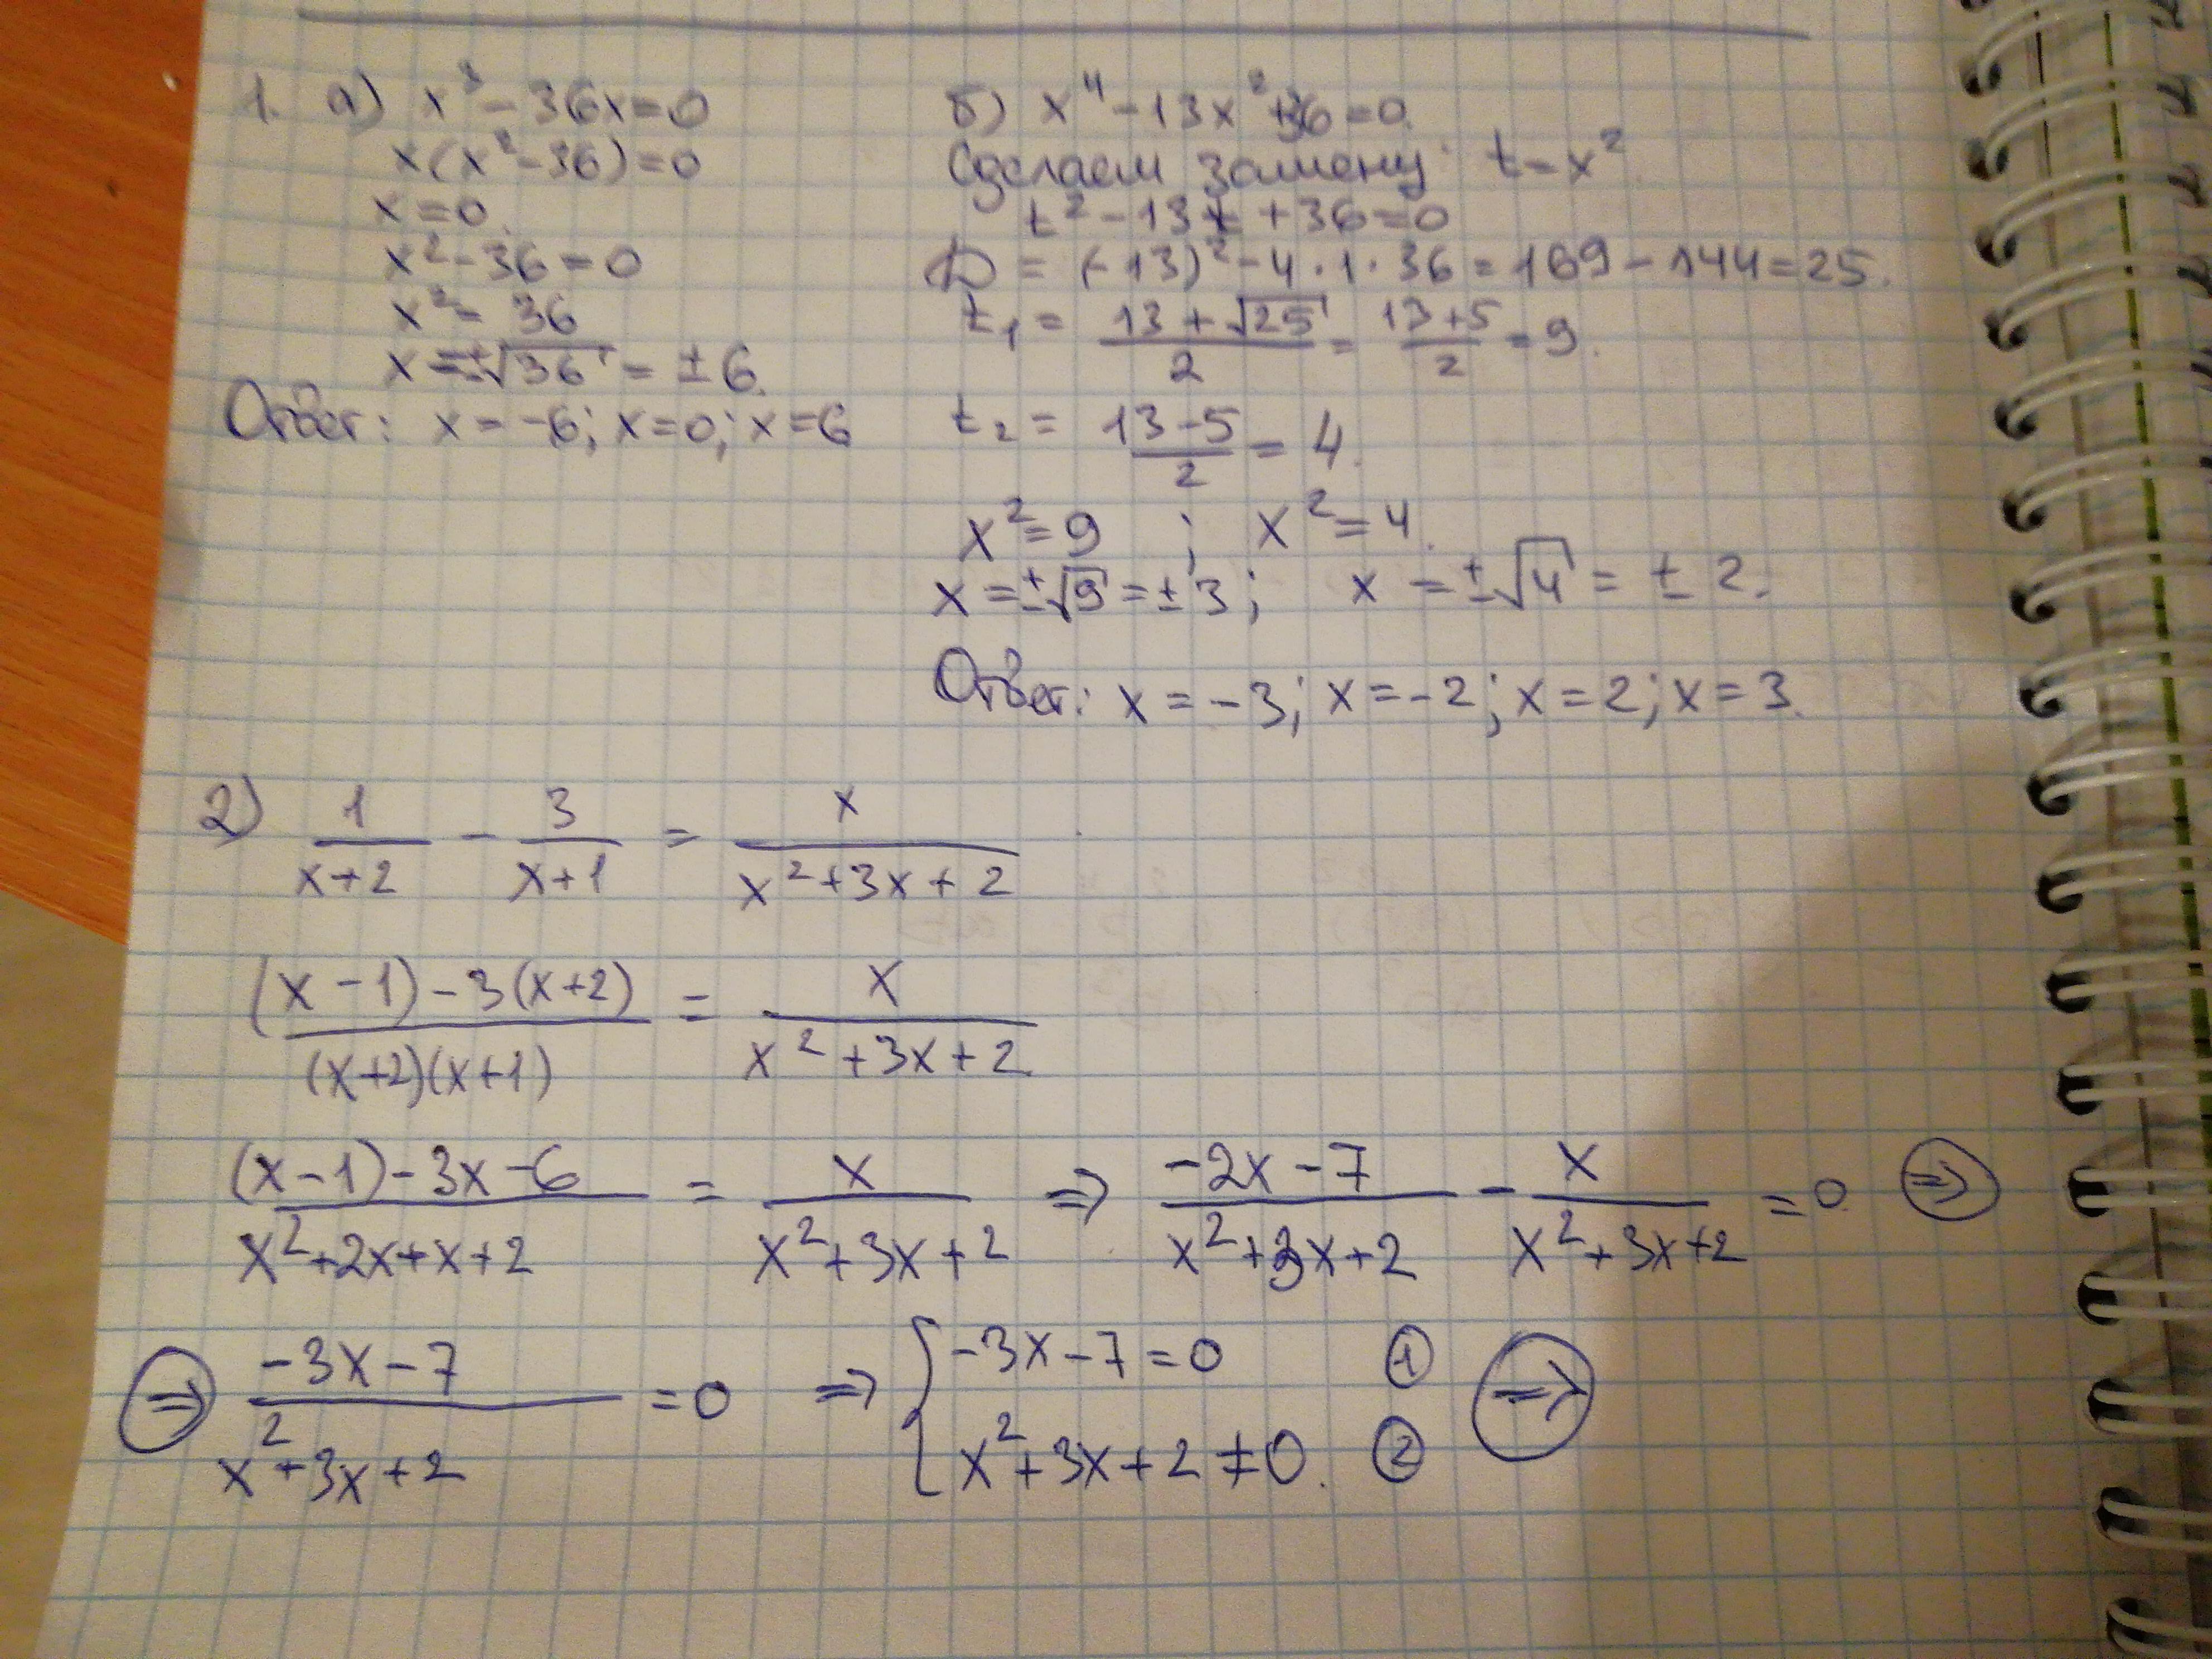 1. а) x³ - 36x = 0
x(x² - 36) = 0
x = 0.
x² - 36 = 0
x² = 36
x = ±√36 = ±6.
Ответ: x = -6; x = 0; x = 6
б) x⁴ - 13x² + 36 = 0.
Сделаем замену: t = x².
t² - 13t + 36 = 0
D = (-13)² - 4·1·36 = 169 - 144 = 25.
t₁ = (13 + √25)/2 = (13 + 5)/2 = 9.
t₂ = (13 - 5)/2 = 4.
x² = 9 ; x² = 4.
x = ±√9 = ±3; x = ±√4 = ±2.
Ответ: x = -3; x = -2; x = 2; x = 3.
2) 1/(x+2) - 3/(x+1) = x/(x²+3x+2)
((x-1) - 3(x+2))/((x+2)(x+1)) = x/(x²+3x+2)
((x-1) - 3x - 6)/(x²+2x+x+2) = x/(x²+3x+2) ⇒ (-2x-7)/(x²+3x+2) - x/(x²+3x+2) = 0 ⇒
⇒ (-3x-7)/(x²+3x+2) = 0 ⇒ { -3x-7 = 0 ①
x²+3x+2 ≠ 0. ② ⇒